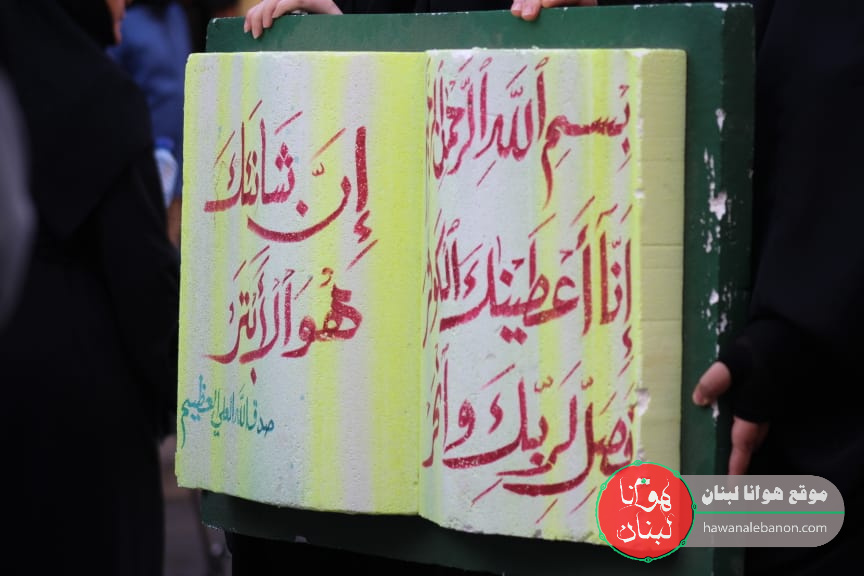 بِسمِ ٱللَّهِ ٱلرَّحمٰنِ
إِنَّآ أَعطَينٰكَ
فَصَلِّ لِرَبِّكَ وَٱنحَر
إِنَّ شَانِئَكَ
هُوَ ٱلأَبتَرُ
صدق الله العلي العظيم
هوانا لبنان
موقع هوانا لبنان
hawanalebanon.com